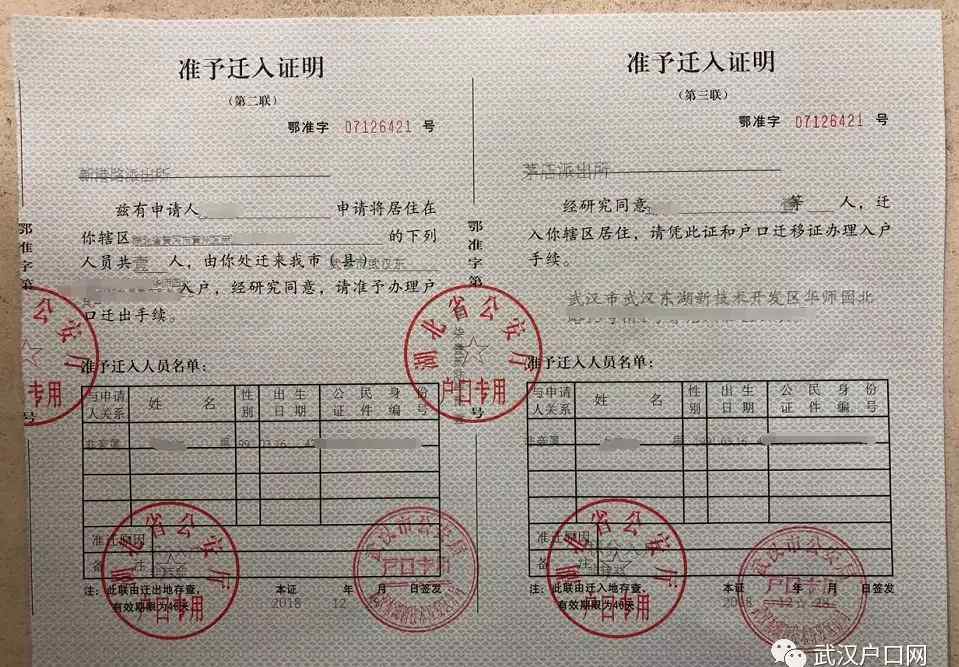 准予迁入证明
（第二联）
鄂准字 07126421 号
新港路派出所
兹有申请人 申请将居住在
你辖区 的下列
人员共壹人，由你处迁来我市（县）
入户，经研究同意，请准予办理户
口迁出手续。
准予迁入人员名单：
与申请人关系 姓名 性别 出生日期 公民身份证件编号
非亲属
准迁原因
备注
注：此联由迁出地存查，
有效期限为40天
本证 年 月 日签发
2018 12
鄂准字第
号
湖北省公安厅
户口专用
湖北省公安厅
户口专用
武汉市公安局
户口专用
准予迁入证明
（第三联）
鄂准字 07126421 号
茅店派出所
经研究同意 壹 等 人，迁
入你辖区居住，请凭此证和户口迁移证办理入户
手续。
武汉市武汉东湖新技术开发区华师园北
准予迁入人员名单：
与申请人关系 姓名 性别 出生日期 公民身份证件编号
非亲属
准迁原因
备注
注：此联由迁入地存查，
有效期限为40天
本证 年 月 日签发
2018 12 26
鄂准字第
号
公安厅
专用
湖北省公安厅
户口专用
武汉市公安局
户口专用
武汉户口网